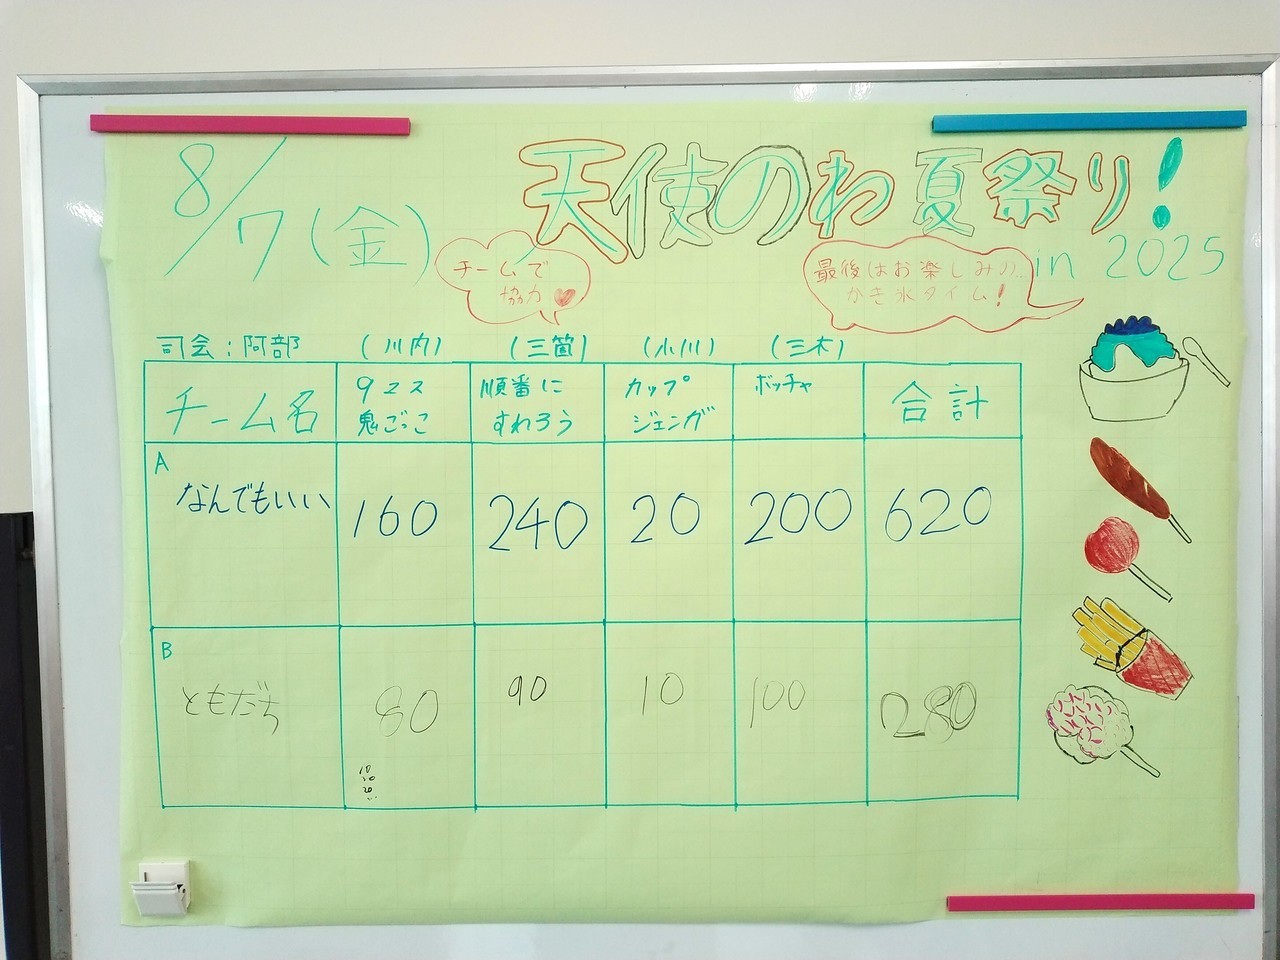 8/7(金)
天使のわ夏祭り!
in 2025
チームで
協力
最後はお楽しみの
かき氷タイム!
司会:阿部 (川内) (三箇) (小川) (三木)
チーム名
9マス
鬼ごっこ
順番に
すわろう
カップ
ジェンガ
ボッチャ
合計
A
なんでもいい 160 240 20 200 620
B
ともだち 80 90 10 100 280